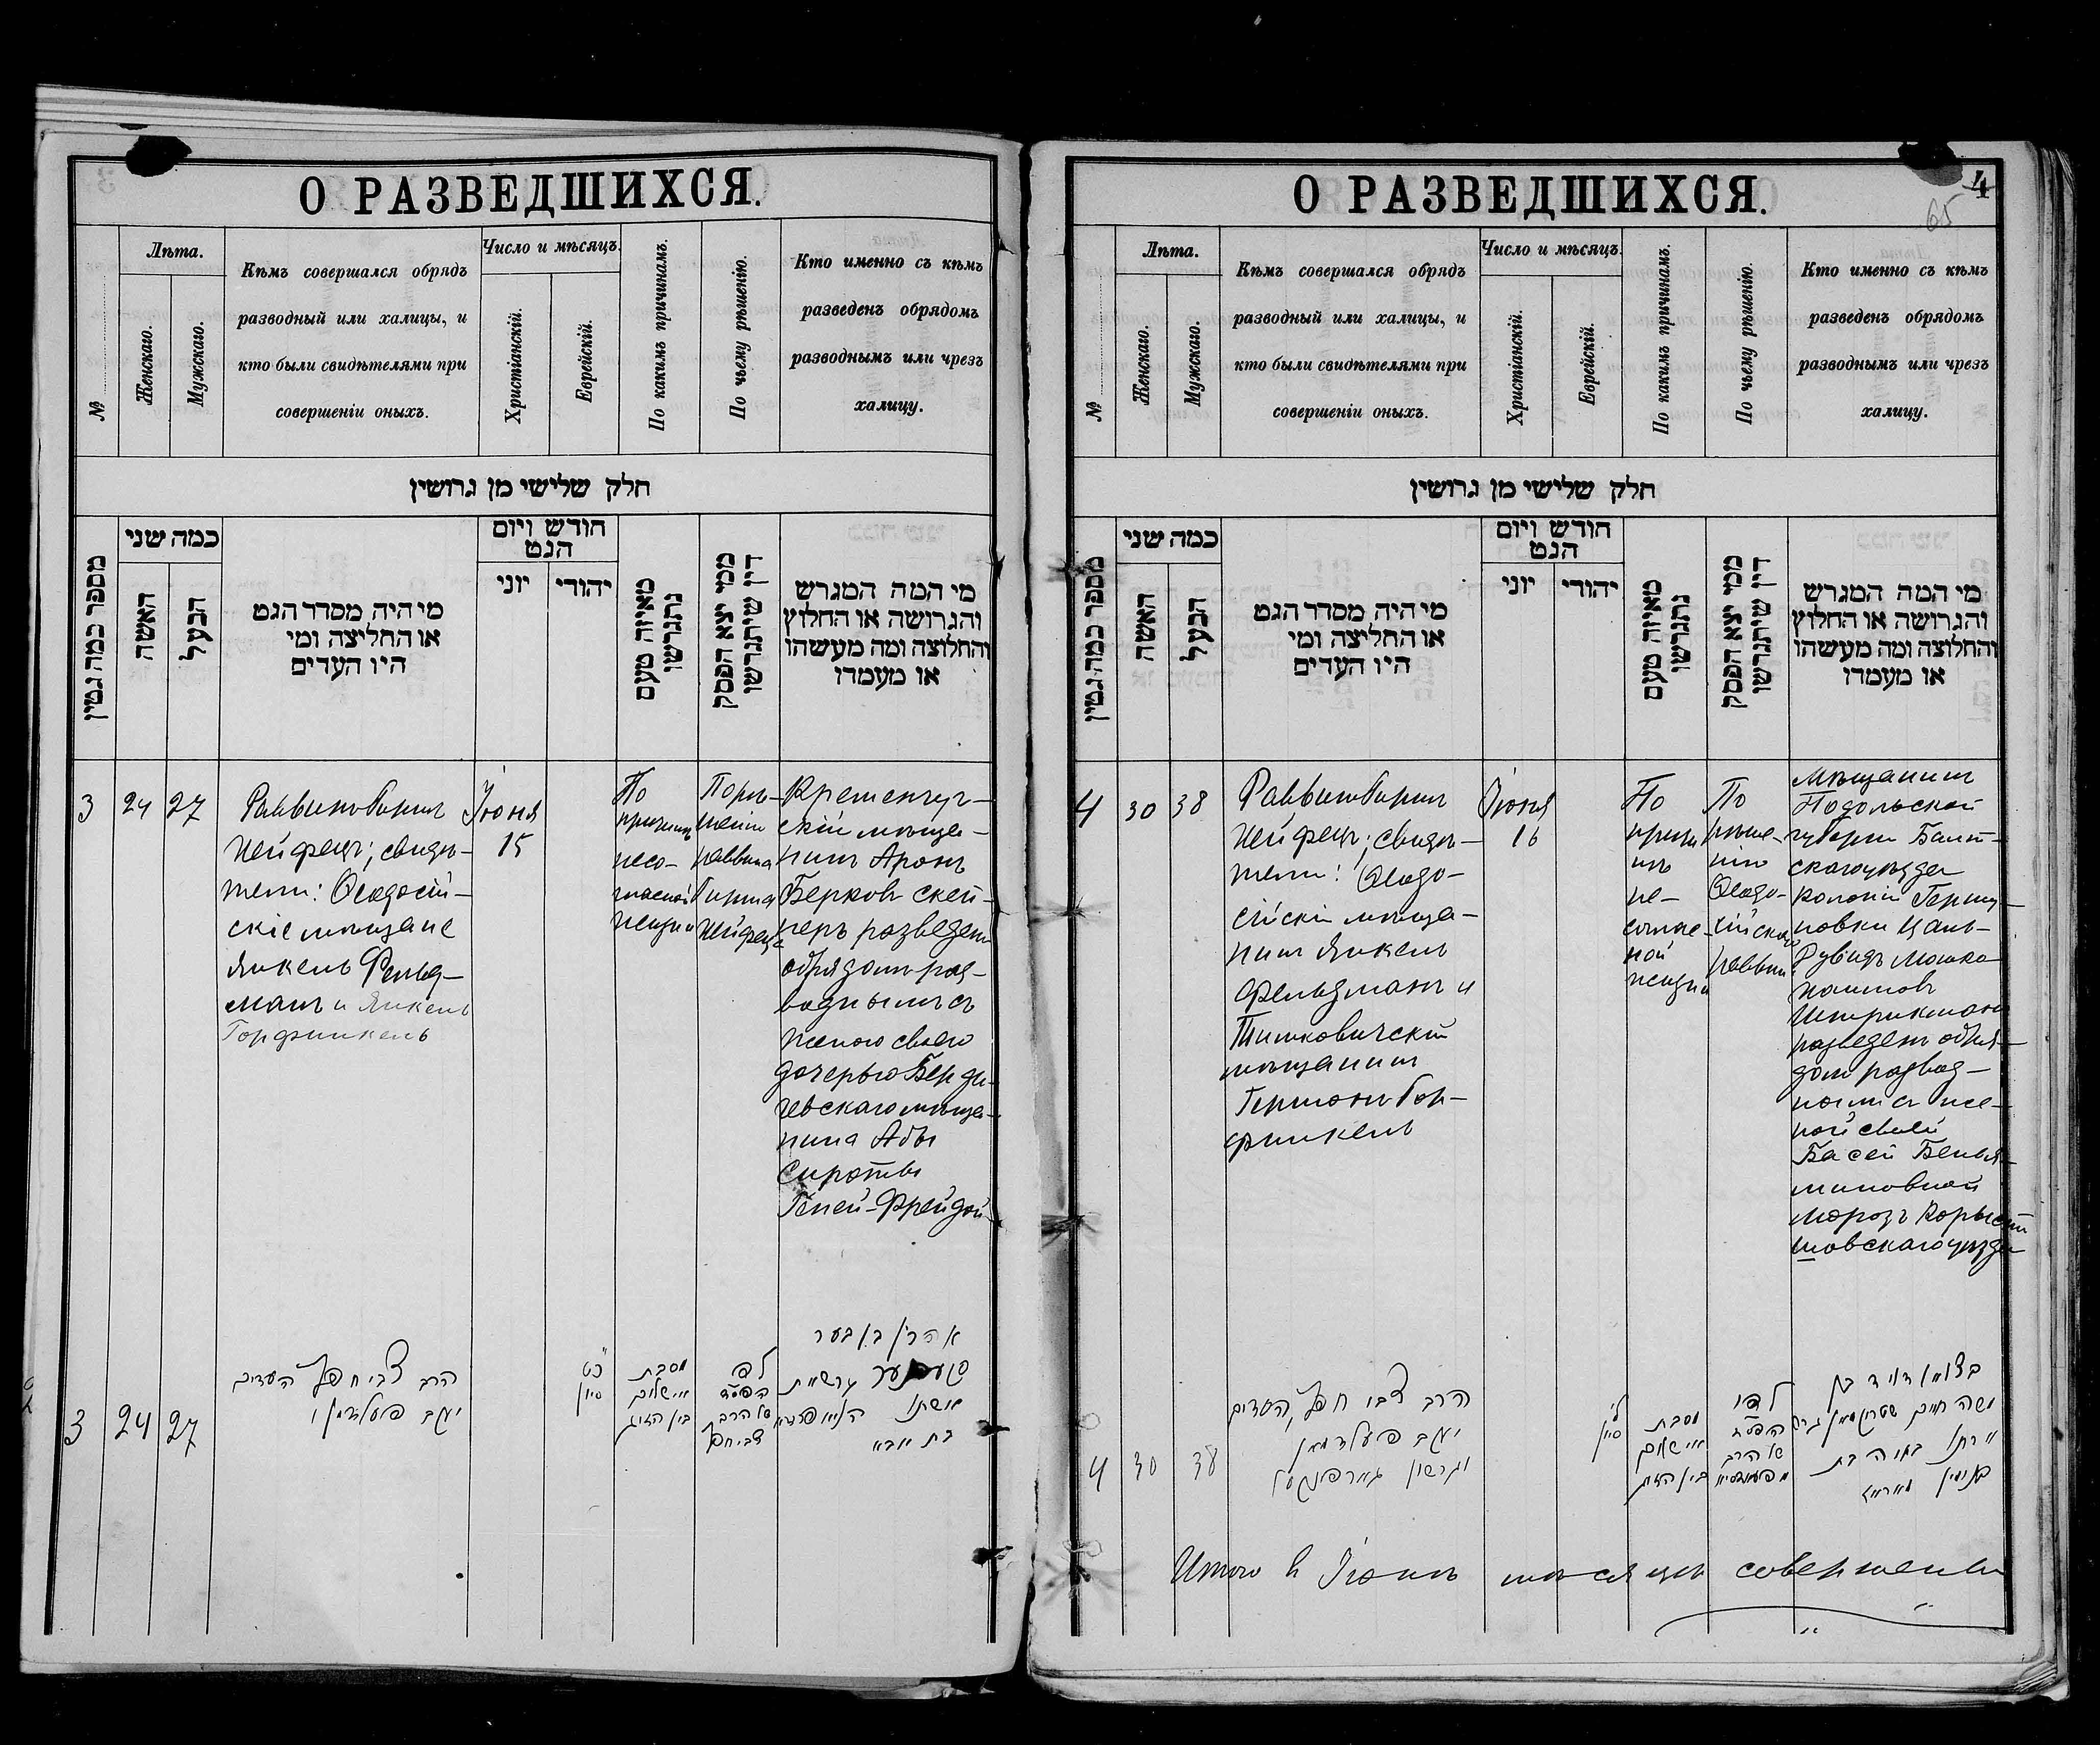 О РАЗВЕДШИХСЯ.
№
Лѣта.
Женскаго.
Мужскаго.
Кѣмъ совершался обрядъ
разводный или халицы, и
кто были свидѣтелями при
совершеніи оныхъ.
Число и мѣсяцъ.
Христіанскій.
Еврейскій.
По какимъ причинамъ.
По чьему рѣшенію.
Кто именно съ кѣмъ
разведенъ обрядомъ
разводнымъ или чрезъ
халицу.
חלק שלישי מן גרושין
מספר כמה גטין
כמה שני
האשה
הבעל
מי היה מסדר הגט
או החליצה ומי
היו העדים
חודש ויום
הגט
יוני
יהודי
מאיזה טעם
נתגרשו
ממי יצא הפסק
דין שיתגרשו
מי המה המגרש
והגרושה או החלוץ
והחלוצה ומה מעשהו
או מעמדו
3
24
27
Раввинъ Гиршъ
Хейфецъ; свидѣ-
тели: Ѳеодосій-
скіе мѣщане
Янкель Фельд-
манъ и Янкель
Горфинкель
Іюня
15
По
причинѣ
несо-
гласной
жизни
По рѣ-
шенію
раввина
Гирша
Хейфеца
Кременчуг-
скій мѣща-
нинъ Аронъ
Берковъ
разведенъ
обрядомъ раз-
воднымъ съ
женою своею
дочерью Берди-
чевскаго мѣща-
нина Абы
Сироты
Геней-Фрейдой
3
24
27
הרב צבי חפץ העדים
יעקב פעלדמאן ו
כ"ט
סיון
מסבת
אי שלום
בין הזוג
לפי
הפס"ד
של הרב
צבי חפץ
אהרן בן בער
גרשית
אשתו
בת אבא
О РАЗВЕДШИХСЯ.
4
65
№
Лѣта.
Женскаго.
Мужскаго.
Кѣмъ совершался обрядъ
разводный или халицы, и
кто были свидѣтелями при
совершеніи оныхъ.
Число и мѣсяцъ.
Христіанскій.
Еврейскій.
По какимъ причинамъ.
По чьему рѣшенію.
Кто именно съ кѣмъ
разведенъ обрядомъ
разводнымъ или чрезъ
халицу.
חלק שלישי מן גרושין
מספר כמה גטין
כמה שני
האשה
הבעל
מי היה מסדר הגט
או החליצה ומי
היו העדים
חודש ויום
הגט
יוני
יהודי
מאיזה טעם
נתגרשו
ממי יצא הפסק
דין שיתגרשו
מי המה המגרש
והגרושה או החלוץ
והחלוצה ומה מעשהו
או מעמדו
4
30
38
Раввинъ Гиршъ
Хейфецъ; свидѣ-
тели: Ѳеодо-
сійскій мѣща-
нинъ Янкель
Фельдманъ и
мѣщанинъ
Гершонъ Гор-
финкель
Іюня
16
По
причи
нѣ
не-
соглас-
ной
жизни
По
рѣше-
нію
Ѳеодо-
сійскаго
раввина
Мѣщанинъ
Подольской
губерніи Балт-
скаго уѣзда
колоніи
разведенъ обря-
домъ развод-
нымъ съ же-
ной своей
Басей Бенья-
миновной
Морозъ
уѣзда
4
30
38
הרב צבי חפץ, העדים
יעקב פעלדמאן
וגרשון גארפינקעל
ל'
סיון
מסבת
אי שלום
בין הזוג
לפי
הפס"ד
של הרב
בת
בנימין
Итого въ Іюнѣ мѣсяцѣ совершено